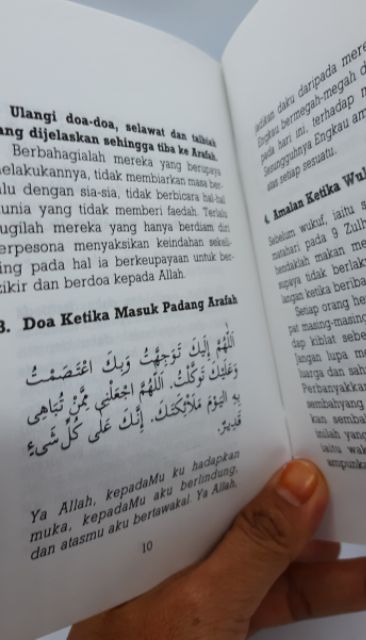 Ulangi doa-doa, selawat dan talbiah
ang dijelaskan sehingga tiba ke Arafah.
Berbahagialah mereka yang berupaya
elakukannya, tidak membiarkan masa ber-
alu dengan sia-sia, tidak berbicara hal-hal
unia yang tidak memberi faedah. Terlalu
ugilah mereka yang hanya berdiam diri
erpesona menyaksikan keindahan sekeli-
ing pada hal ia berkeupayaan untuk ber-
zikir dan berdoa kepada Allah.
3. Doa Ketika Masuk Padang Arafah
اَللّٰهُمَّ إِلَيْكَ تَوَجَّهْتُ وَبِكَ اعْتَصَمْتُ
وَعَلَيْكَ تَوَكَّلْتُ. اَللّٰهُمَّ اجْعَلْنِى مِمَّنْ تُبَاهِى
بِهِ الْيَوْمَ مَلَائِكَتَكَ. إِنَّكَ عَلَى كُلِّ شَىْءٍ
قَدِيْرٌ.
Ya Allah, kepadaMu ku hadapkan
muka, kepadaMu aku berlindung,
dan atasmu aku bertawakal. Ya Allah,
10
jadikan daku daripada mere
Engkau bermegah-megah d
pada hari ini, terhadap m
Sesungguhnya Engkau am
atas setiap sesuatu.
4. Amalan Ketika Wul
Sebelum wukuf, iaitu s
matahari pada 9 Zulh
hendaklah makan me
supaya tidak berlak
langan ketika beriba
Setiap orang he
pat masing-masing
dap kiblat sebe
Jangan lupa me
luarga dan sah
Perbanyakkan
sembahyang
kan sembal
inilah yang
iaitu wak
ampunka